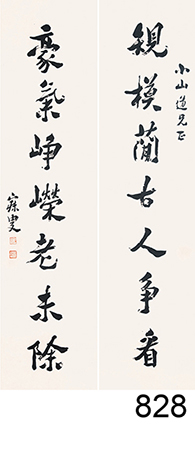 小山道兄正
規模蕳古人争看
豪氣峥嶸老未除
寐叟
828